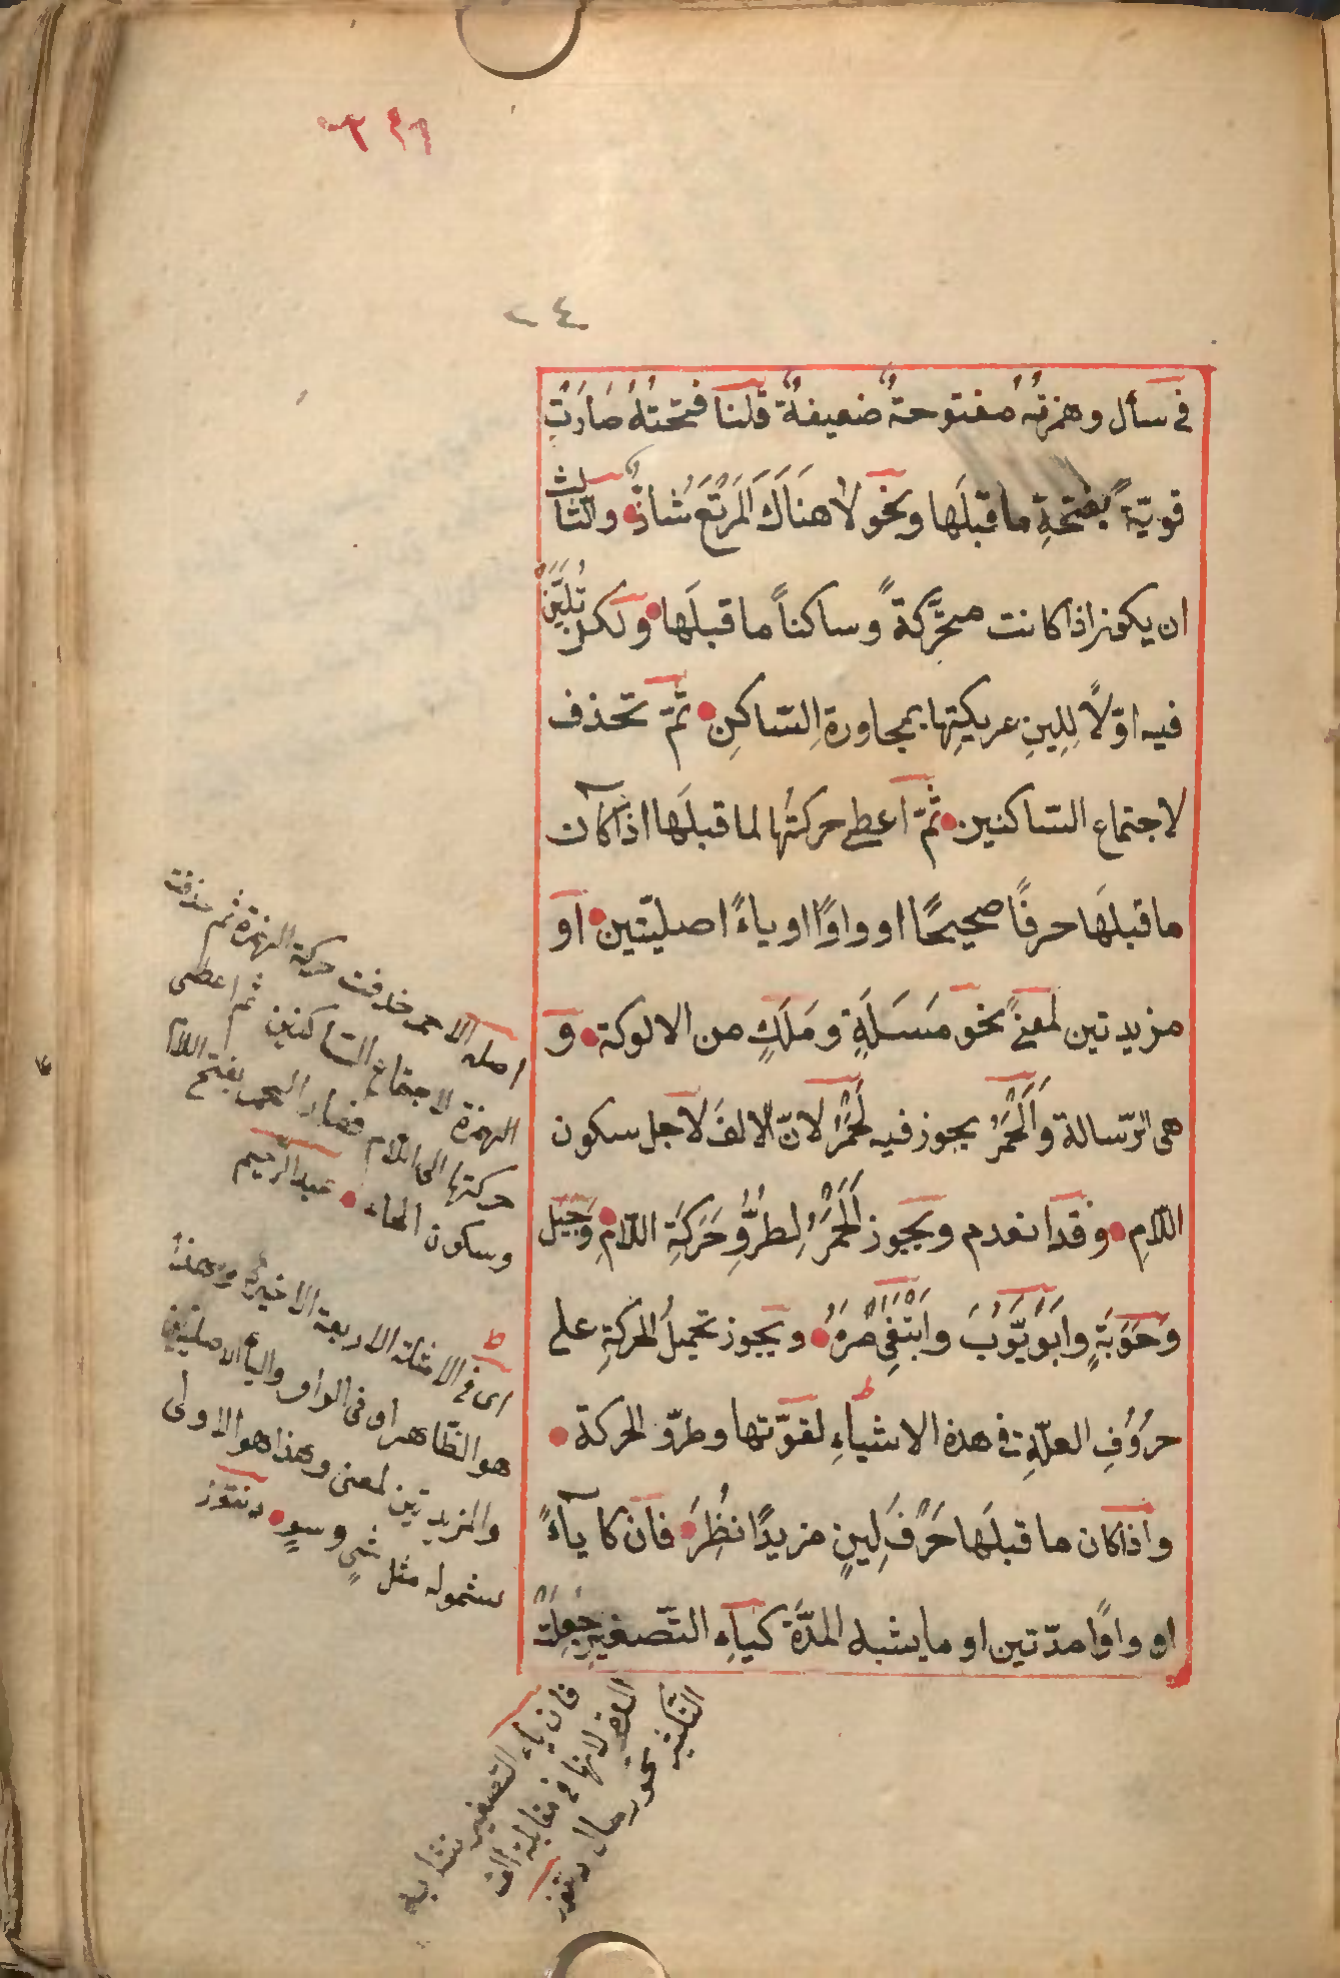 ٢٤
في سأل وهمزتُهُ مفتوحةٌ ضعيفةٌ قلنا فتحتُهُ صَارَتْ
قويّةً بفتحةِ ما قبلَها ونحو لَا هَنَاكَ الْمَرْتَعُ شاذٌّ والثالث
ان يكون اذا كانت متحرِّكةً وساكناً ما قبلَها ولكن تُلَيَّنُ
فيه اوّلاً لِلِينِ عريكتِها بمجاورةِ السّاكنِ ثمّ تحذف
لاجتماع السّاكنين ثمّ اعطى حركتُها لما قبلَها اذا كان
ما قبلَها حرفًا صحيحًا او واوًا او ياءً اصليّتين او
مزيدتين لمعنًى نحو مَسَلَةٍ ومَلَكٍ من الالوكة و
هى الرّسالة وَاَلَحْمَرُ يجوز فيه لَحْمَرُ لانّ الالفَ لاجل سكون
اللّامِ وقد انعدم ويجوز اَلَحْمَرُ لِطُرُوِّ حَرَكَةِ اللّامِ وَجَيَل
وَحَوَبَةٍ وابَوَيُّوبَ وابْتَغِىَ مْرَهُ ويجوز تحميلُ الحركةِ على
حرُوُفِ العلّةِ فى هذه الاشياءِ لقوّتها وطروّ الحركة
واذا كان ما قبلَها حَرْفَ لِينٍ مزيدًا نُظِرَ فان كا ياءً
او واوًا مدّتين او ما يشبه المدّةَ كياءِ التّصغيرِ جُعِلَتْ
اصله الاحمر خذفت حركة الهمزة ثم حذفت
الهمزة لاجتماع السّاكنين ثم اعطى
حركتها الى اللام فصار الحمر بفتح اللام
وسكون الحاء عبد الرحيم
اى فى الامثلة الاربعة الاخيرة وهذا
هو الظّاهر او فى الواو والياء الاصليتين
والمزيدتين لمعنى وهذا هو الاولى
لشموله مثل شىٍ وسوٍ دنقوز
فان ياء التصغير تشابه
لانها فى مقابلة الف
التكثير نحو دنقوز